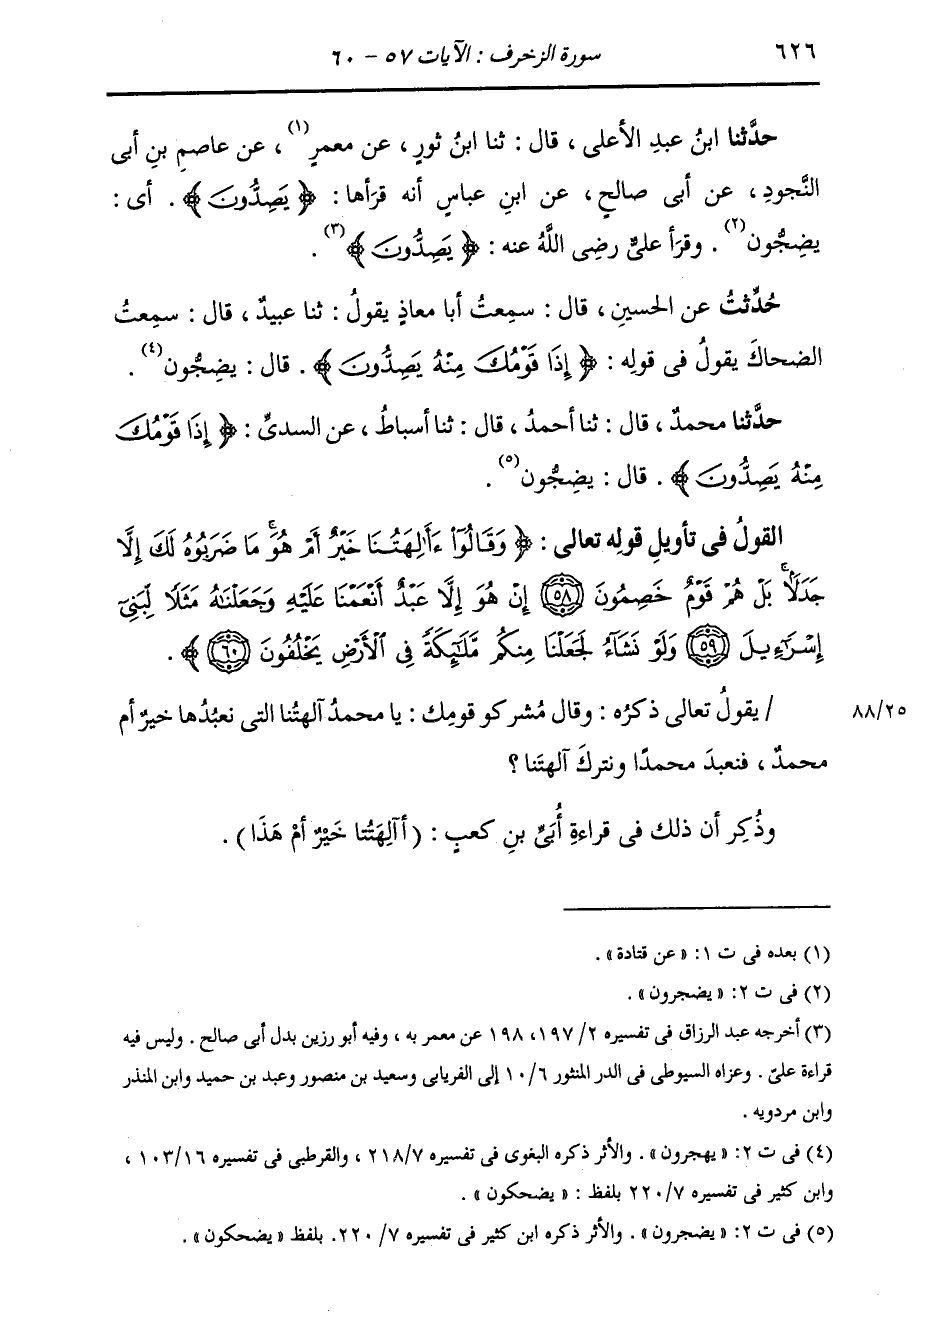 ٦٢٦
سورة الزخرف : الآيات ٥٧ - ٦٠
حدَّثنا ابنُ عبدِ الأعلى ، قال : ثنا ابنُ ثورٍ ، عن معمرٍ(١) ، عن عاصمِ بنِ أبى
النَّجودِ ، عن أبى صالحٍ ، عن ابنِ عباسٍ أنه قرَأها : ﴿ يَصِدُّونَ ﴾ . أى :
يضِجُّون(٢) . وقرَأ علىٌّ رضِى اللَّهُ عنه : ﴿ يَصِدُّونَ ﴾(٣) .
حُدِّثتُ عن الحسينِ ، قال : سمِعتُ أبا معاذٍ يقولُ : ثنا عبيدٌ ، قال : سمِعتُ
الضحاكَ يقولُ فى قولِه : ﴿ إِذَا قَوْمُكَ مِنْهُ يَصِدُّونَ ﴾ . قال : يضِجُّون(٤) .
حدَّثنا محمدٌ ، قال : ثنا أحمدُ ، قال : ثنا أسباطُ ، عن السدىِّ : ﴿ إِذَا قَوْمُكَ
مِنْهُ يَصِدُّونَ ﴾ . قال : يضِجُّون(٥) .
القولُ فى تأويلِ قولِه تعالى : ﴿ وَقَالُوٓا۟ ءَأَٰلِهَتُنَا خَيْرٌ أَمْ هُوَ ۚ مَا ضَرَبُوهُ لَكَ إِلَّا
جَدَلًۢا ۚ بَلْ هُمْ قَوْمٌ خَصِمُونَ ٥٨ إِنْ هُوَ إِلَّا عَبْدٌ أَنْعَمْنَا عَلَيْهِ وَجَعَلْنَٰهُ مَثَلًا لِّبَنِىٓ
إِسْرَٰٓءِيلَ ٥٩ وَلَوْ نَشَآءُ لَجَعَلْنَا مِنكُم مَّلَٰٓئِكَةً فِى ٱلْأَرْضِ يَخْلُفُونَ ٦٠ ﴾ .
/ يقولُ تعالى ذكرُه : وقال مُشركو قومِك : يا محمدُ آلهتُنا التى نعبُدُها خيرٌ أم
٨٨/٢٥
محمدٌ ، فنعبدَ محمدًا ونتركَ آلهتَنا ؟
وذُكِر أن ذلك فى قراءةِ أُبَىِّ بنِ كعبٍ : ( أآلِهَتُنا خَيْرٌ أمْ هَذَا ) .
(١) بعده فى ت ١: « عن قتادة » .
(٢) فى ت ٢: « يضجرون » .
(٣) أخرجه عبد الرزاق فى تفسيره ٢/ ١٩٧، ١٩٨ عن معمر به ، وفيه أبو رزين بدل أبى صالح . وليس فيه
قراءة علىّ . وعزاه السيوطى فى الدر المنثور ١٠/٦ إلى الفريابى وسعيد بن منصور وعبد بن حميد وابن المنذر
وابن مردويه .
(٤) فى ت ٢: « يهجرون » . والأثر ذكره البغوى فى تفسيره ٢١٨/٧ ، والقرطبى فى تفسيره ١٠٣/١٦ ،
وابن كثير فى تفسيره ٢٢٠/٧ بلفظ : « يضحكون » .
(٥) فى ت ٢: « يضجرون » . والأثر ذكره ابن كثير فى تفسيره ٧/ ٢٢٠. بلفظ « يضحكون » .